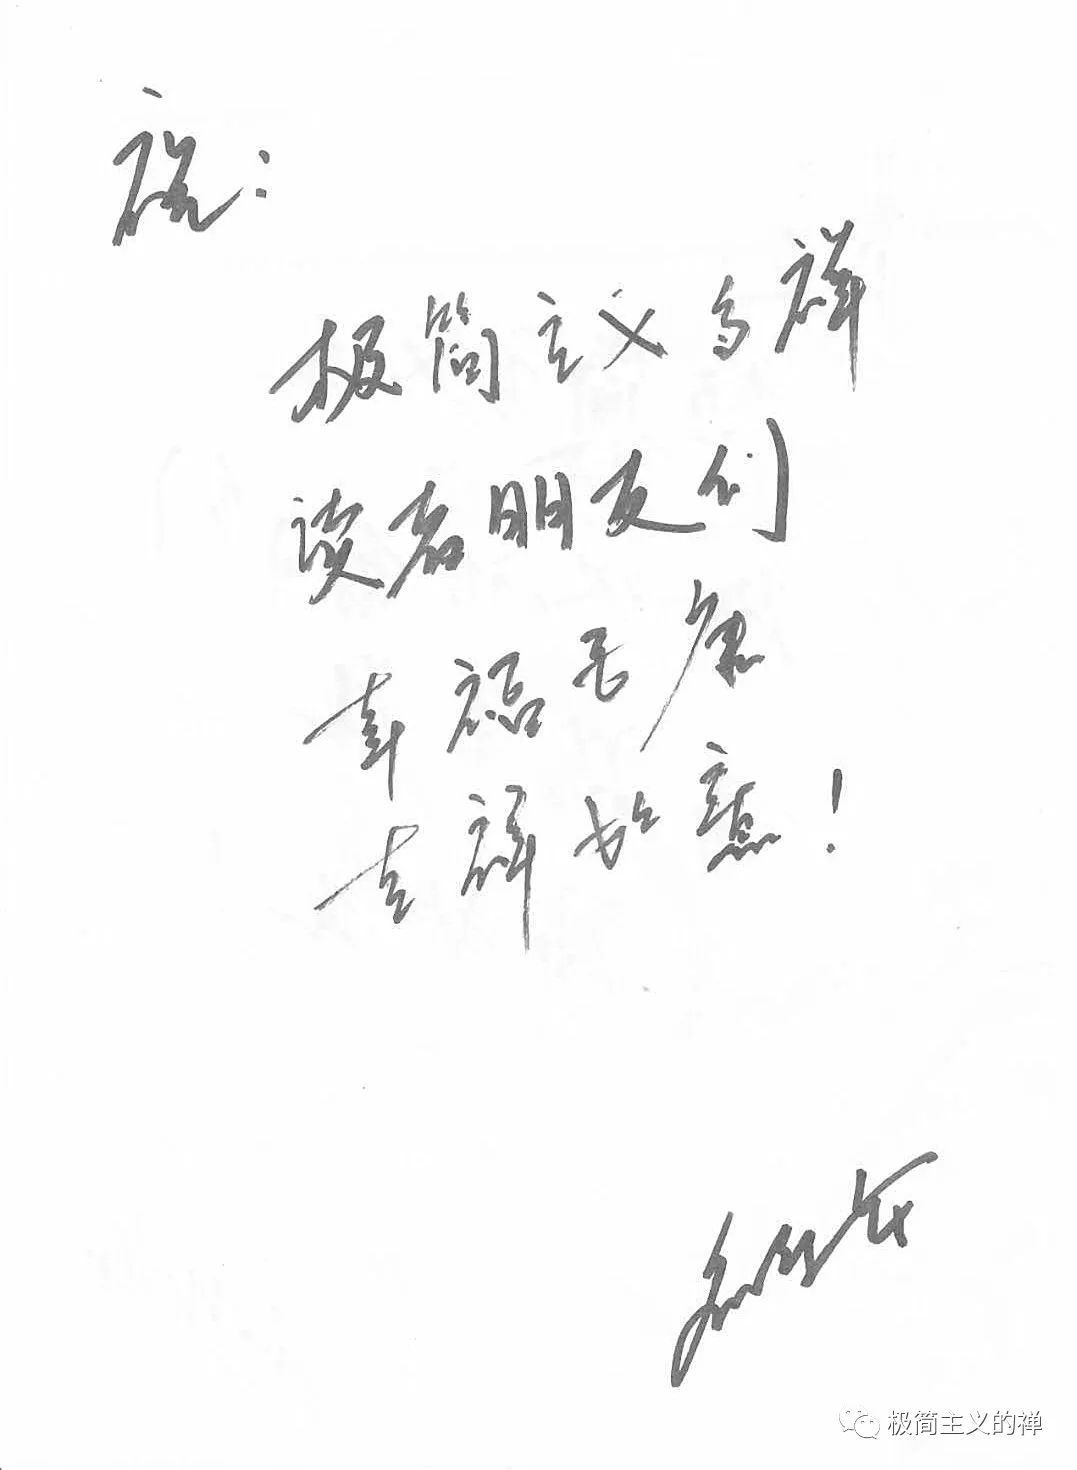 祝：
极简主义的禅
读者朋友们
幸福安康
吉祥如意！
极简主义的禅